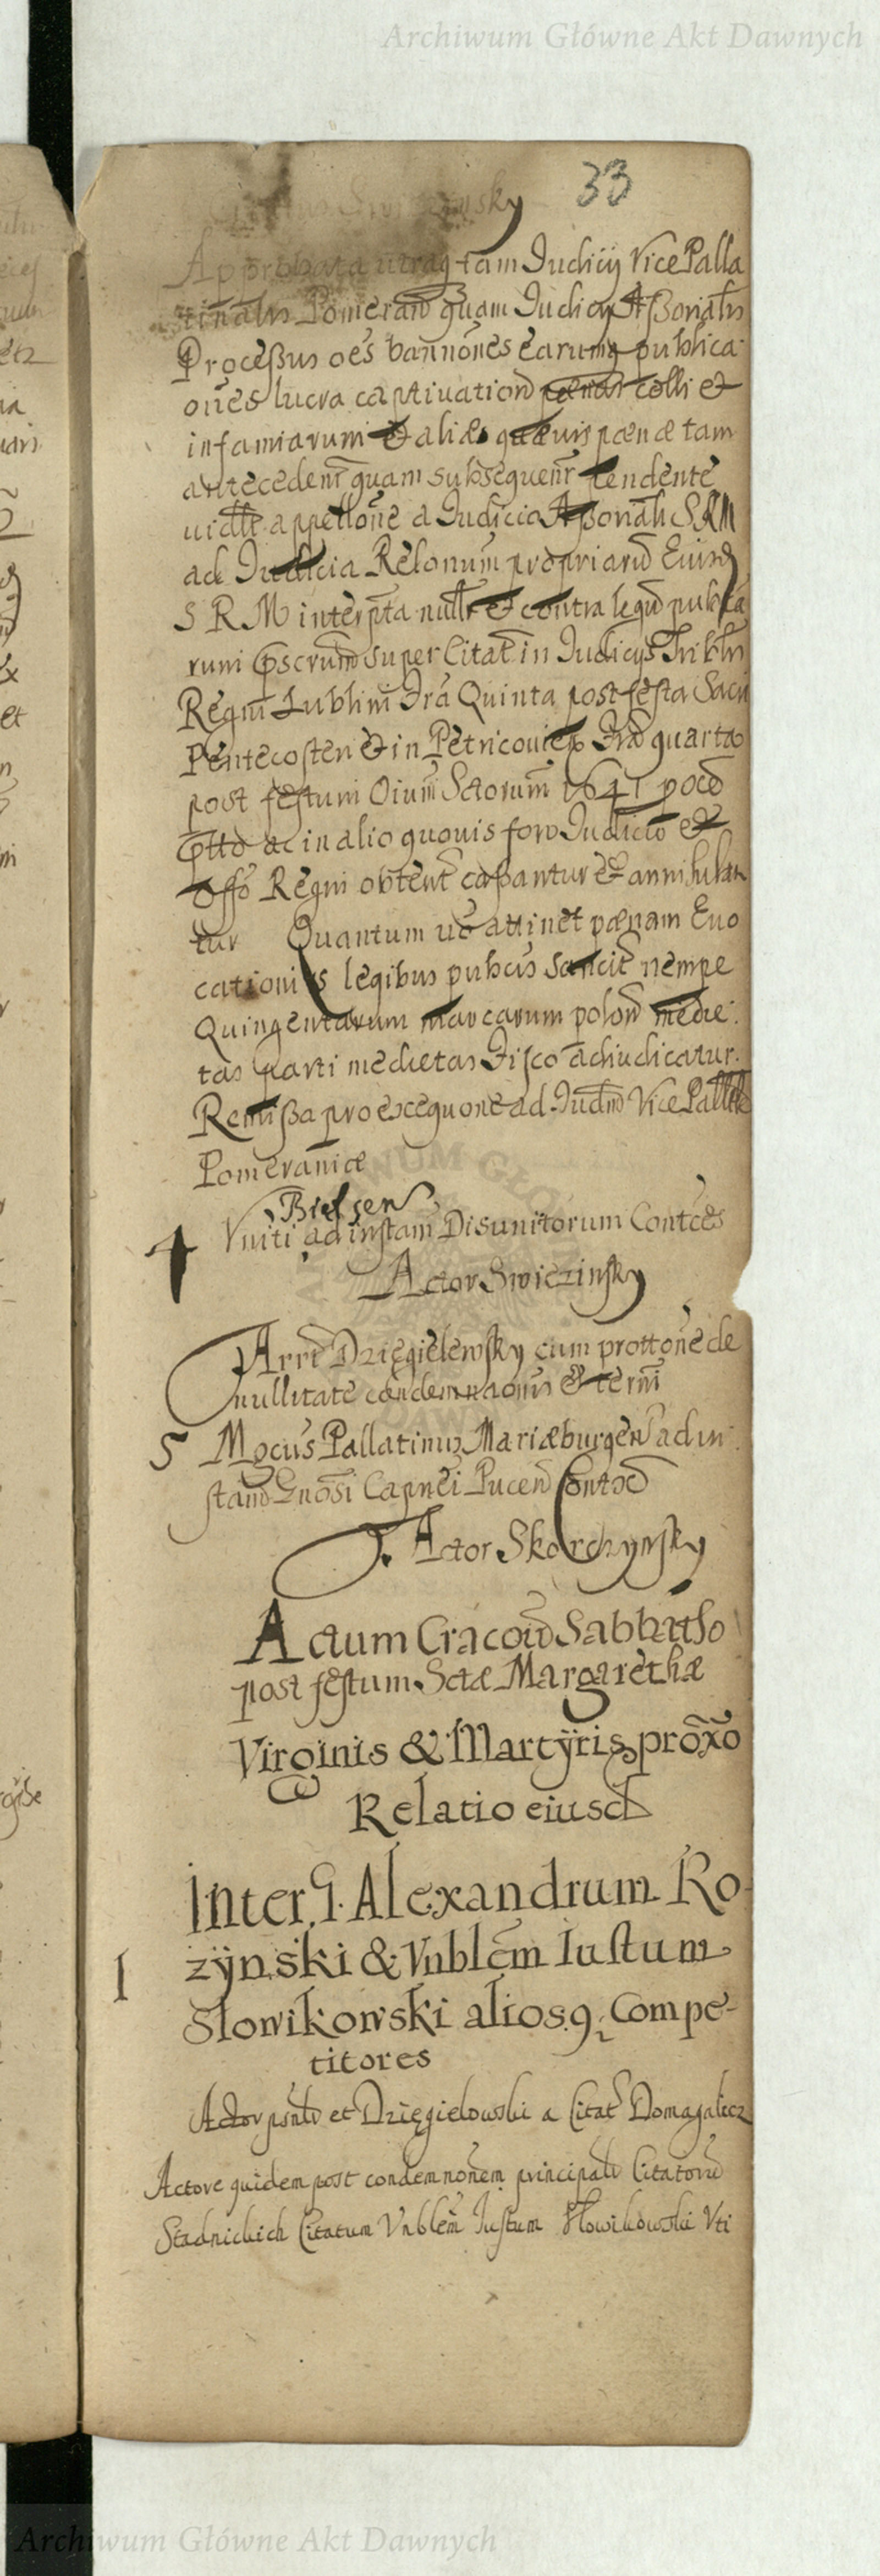 Archiwum Główne Akt Dawnych
33
Approbata utraq tam Iudicij VicePalla
tinalis Pomeran quam Iudicij Aßorialis
Proceßus oēs bannōnes earumq publica
oues lucra captivation pænas colli et
infamiarum et aliæ quævis pænæ tam
antecedent quam subsequent pendente
appellōne a Iudicio Aßoriali SRM
ad Iudicia Relonum propriarū Eiusd
S R M interpta nullr et contra legū publica
rum super Citat in Iudicijs Tribln
Regni Lublini Fra Quinta post festa Sacri
Pentecosten et in Petricovien Fra quarta
post festum Oium Sctorum 1641
ac in alio quovis foro Iudicio et
Offo Regni obtent caßantur et annihilan
tur Quantum vō attinet pænam Evo
cationis legibus pubcis sancit nempe
Quingentarum marcarum polon medie
tas parti medietas Fisco adiudicatur.
Remißa pro exequone ad Iudm VicePallle
Pomeraniæ
Bielsen
4 Vniti ad instam Disunitorum Contces
Actor Swiczinsky
Arrt Dzięgielewsky cum prottone de
nullitate condemnaonis et termi
5 Mgcus Pallatinus Mariæburgen ad in
stand Gnosi Capnei Pucen Contd
Actor Skorchynsky
Actum Cracow Sabbatho
post festum Sctæ Margarethæ
Virginis & Martyris proxo
Relatio eiusd
Inter G. Alexandrum Ro-
1 zynski & Vnblem Iustum
Slowikowski alios q. Compe-
titores
Actor psnlr et Dzięgielowski a Citat Domagalicz
Actore quidem post condemnonem principalr Citatorū
Stadnickich Citatum Vnblem Iustum Słowikowski Vti
Archiwum Główne Akt Dawnych